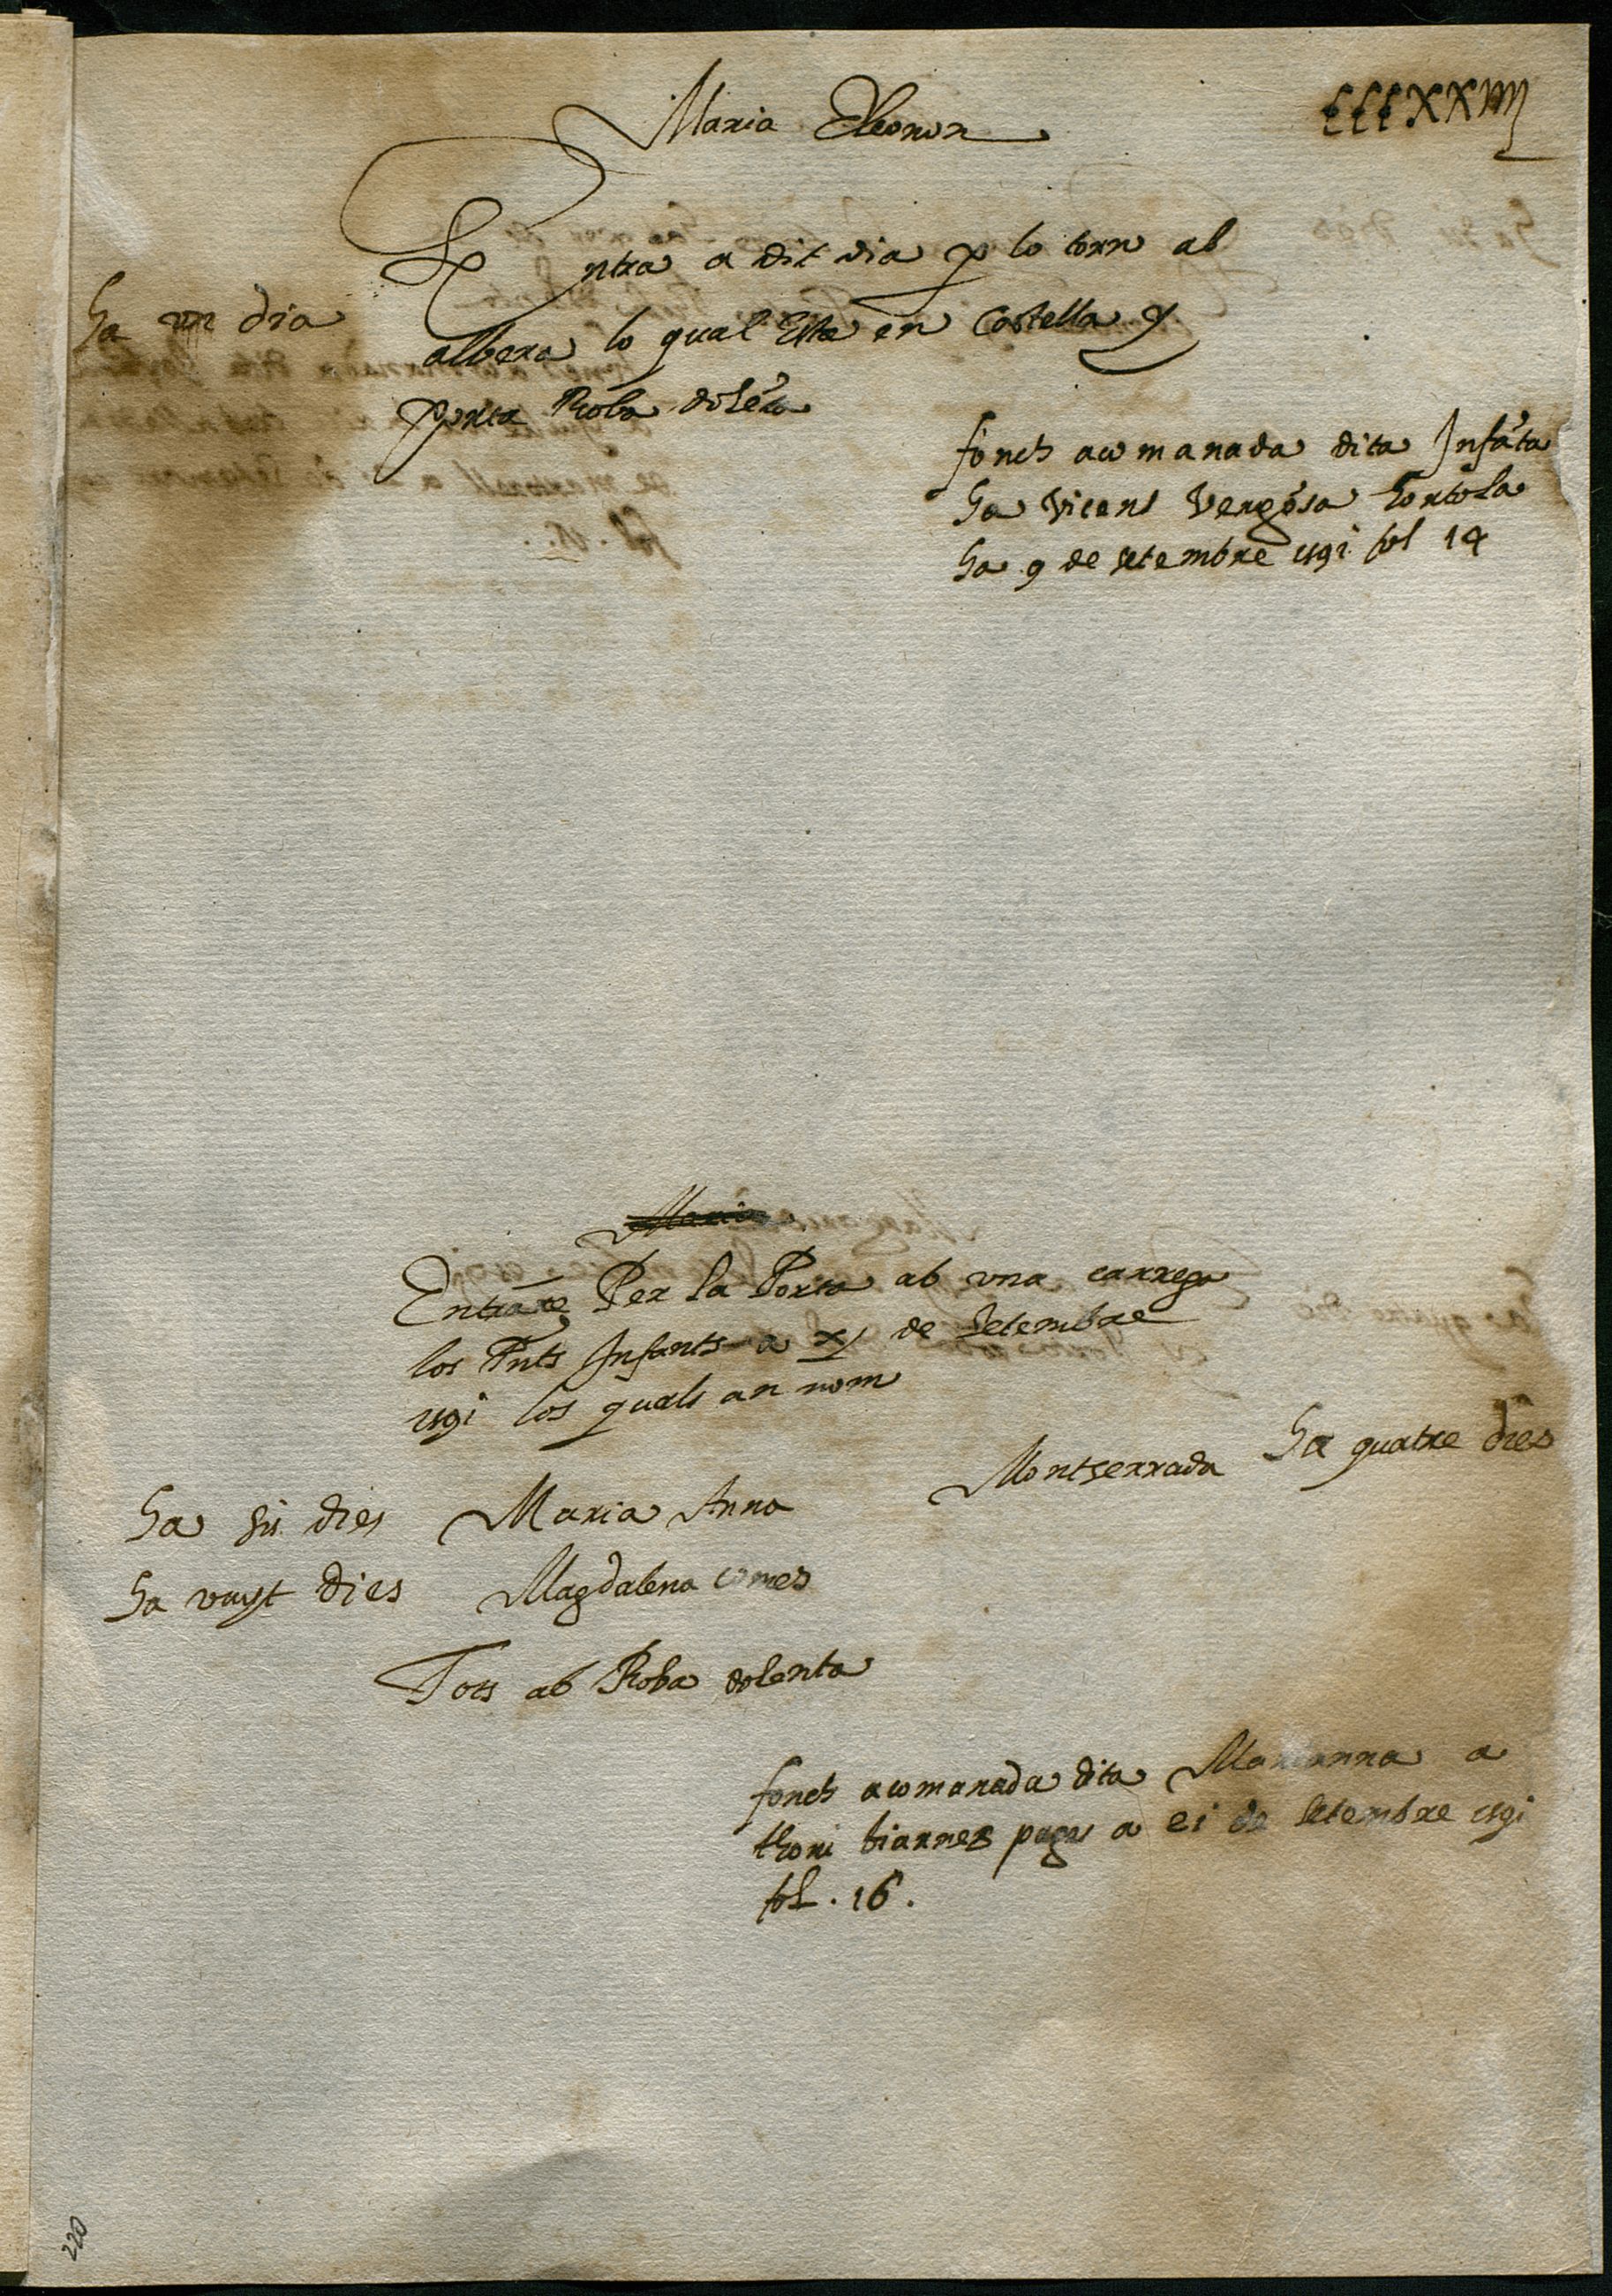 Maria Eleonor
CCCXXIIII
Ha un dia
Entra a dit dia p lo torn ab
albera lo qual Esta en Castella y
porta Roba doleta
fonch acomanada dita Infata
ha Vicens Vergosa hortola
ha 9 de setembre 1591 fol 14
Maria
Entrare Per la Porta ab una carrega
los Pnts Infants a xj de Setembre
1591 los quals an nom
Montserrada Ha quatre dies
Ha sis dies Maria Anna
Ha vuyt dies Magdalena comes
Tots ab Roba dolenta
fonch acomanada dita Marianna a
thoni biarnes pages a 21 de setembre 1591
fol . 16 .
220